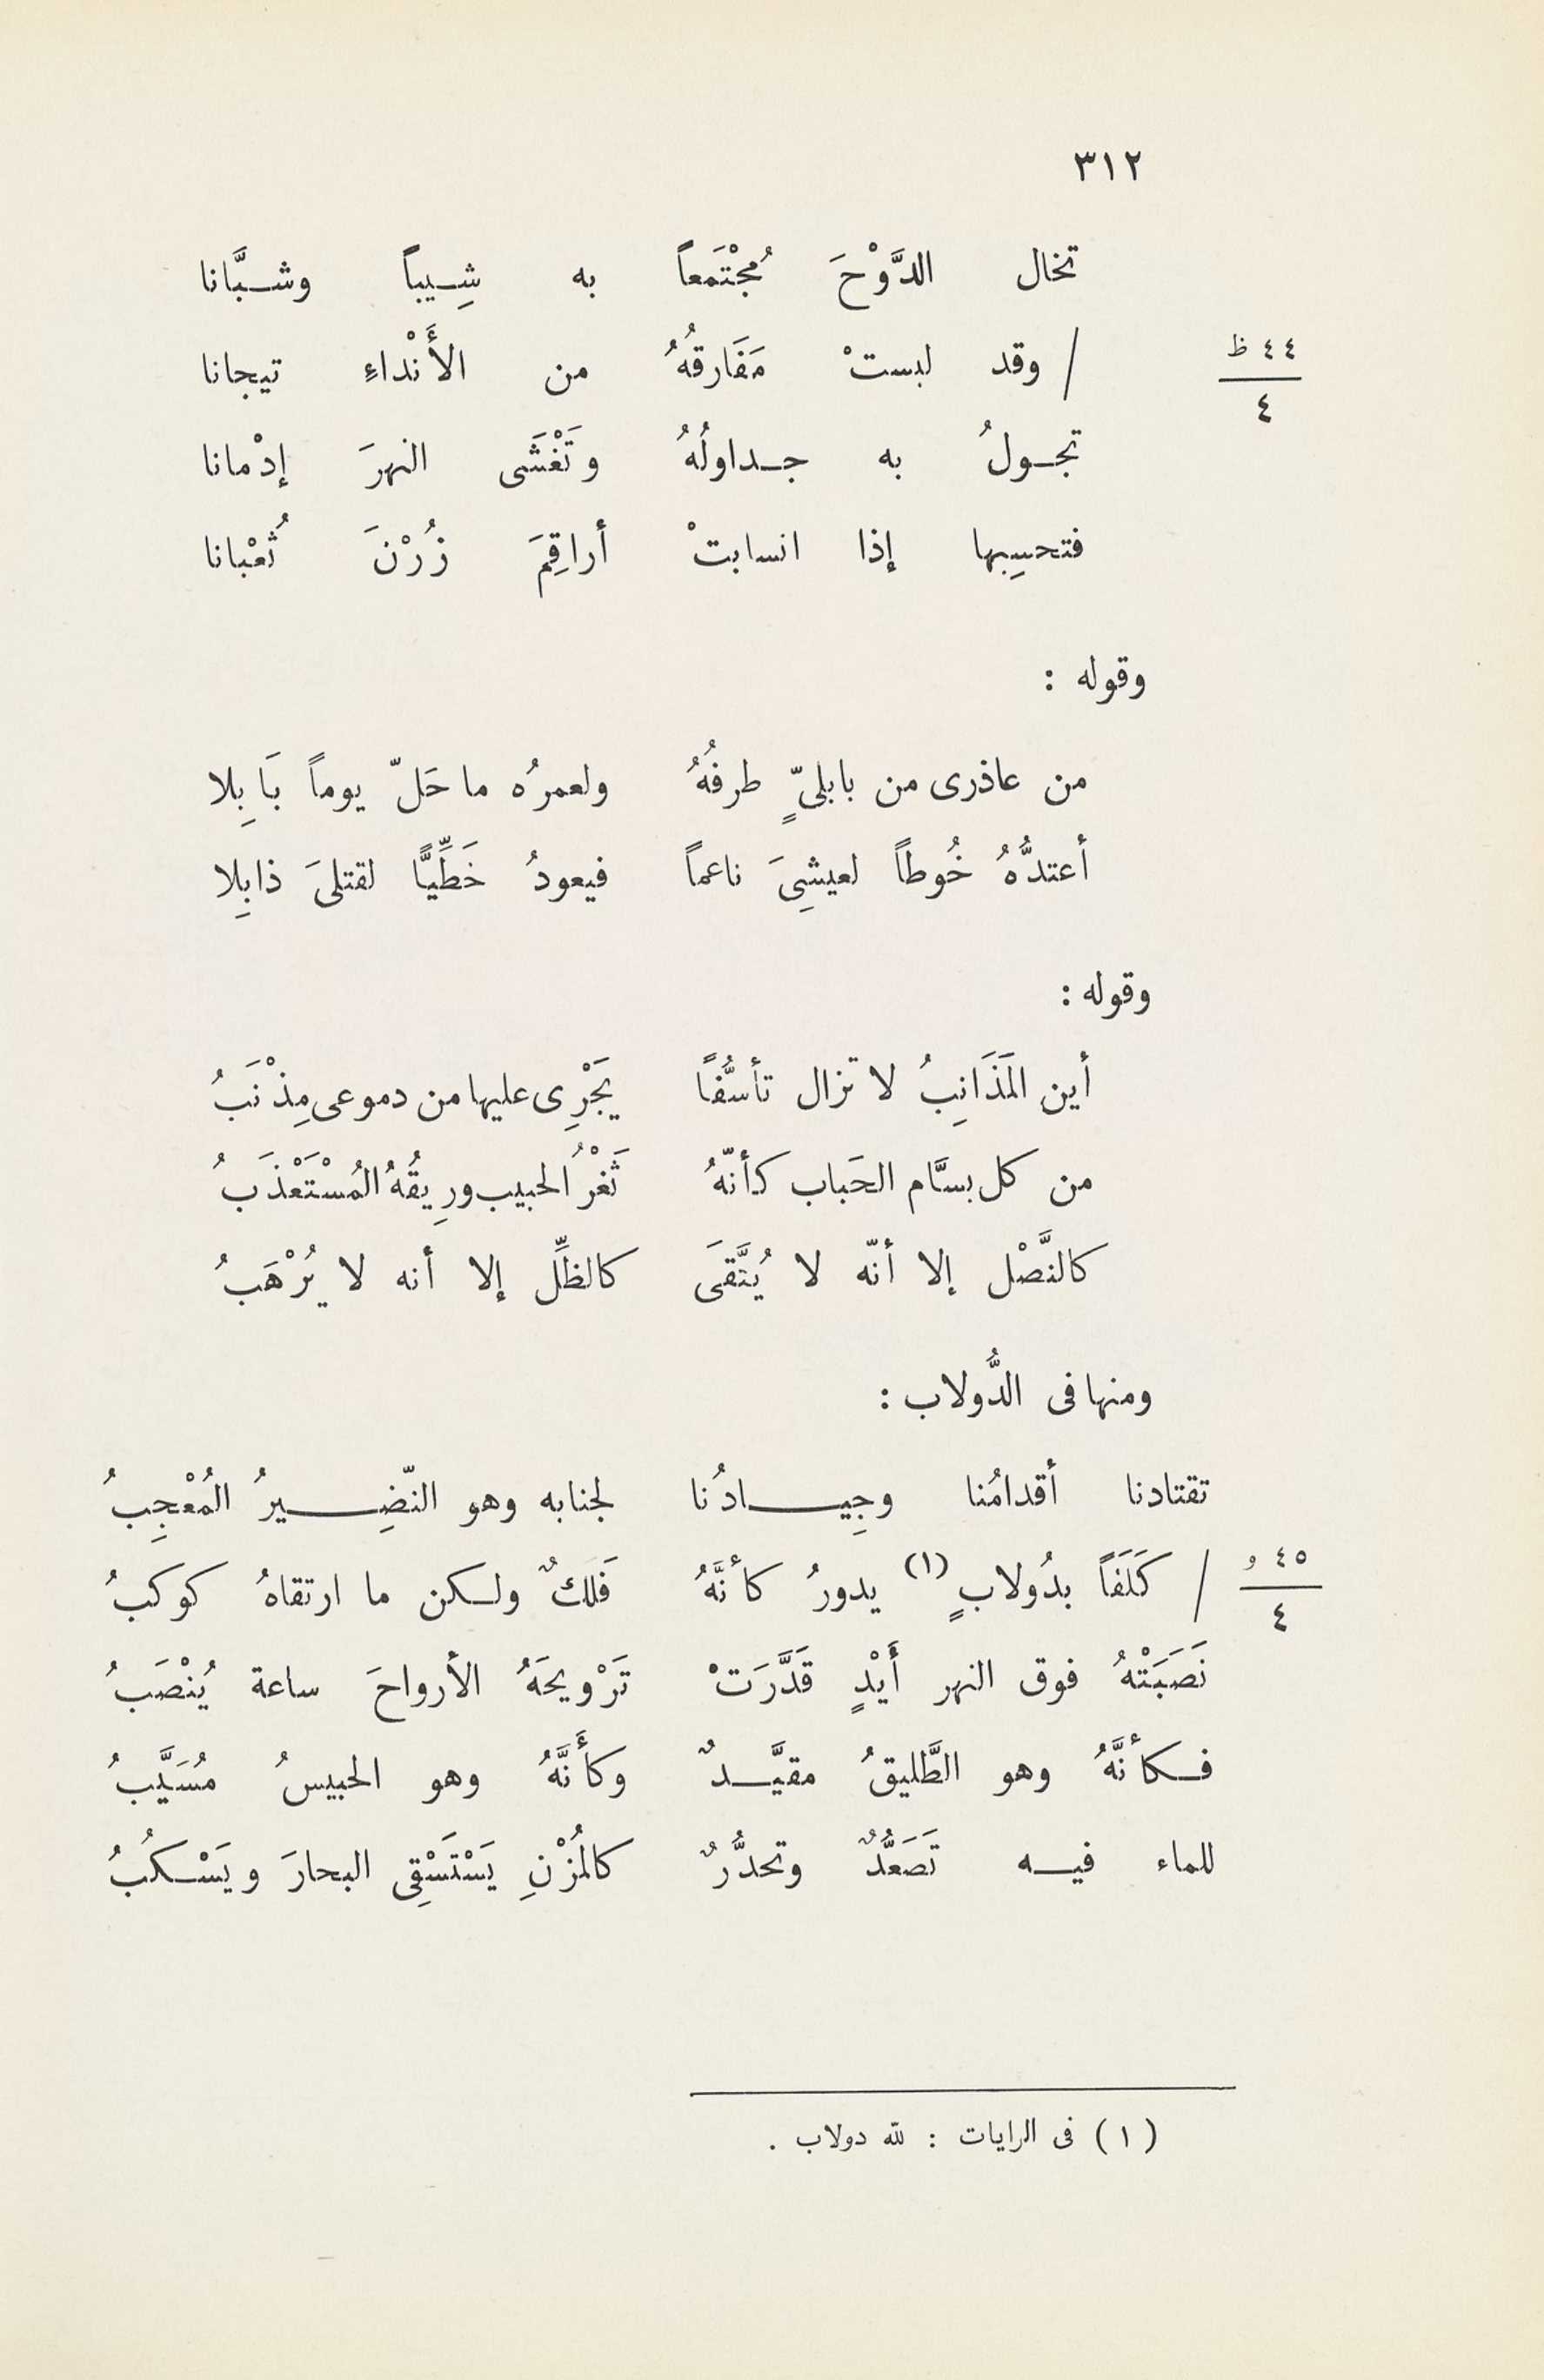 ٣١٢
تخال الدَّوْحَ مُجْتَمَعاً به شِيباً وشبَّانا
٤٤ ظ
٤
/ وقد لبستْ مَفَارقُهُ من الأَنْداءِ تيجانا
تجولُ به جداولُهُ وتَغْشَى النهرَ إدْمانا
فتحسِبها إذا انسابتْ أراقِمَ زُرْنَ ثُعْبانا
وقوله :
من عاذرى من بابلىٍّ طرفُهُ ولعمرُه ما حَلّ يوماً بَابِلا
أعتدُّهُ خُوطاً لعيشِىَ ناعماً فيعودُ خَطِّيًّا لقتلىَ ذابِلا
وقوله :
أين المَذَانِبُ لا تزال تأسُّفًا يَجْرِى عليها من دموعى مِذْنَبُ
من كل بسَّام الحَباب كأنّهُ ثَغْرُ الحبيب ورِيقُهُ المُسْتَعْذَبُ
كالنَّصْل إلا أنّه لا يُتَّقَى كالظِّلِّ إلا أنه لا يُرْهَبُ
ومنها فى الدُّولاب :
تقتادنا أقدامُنا وجِيادُنا لجنابه وهو النّضِيرُ المُعْجِبُ
٤٥ و
٤
/ كَلَفَاً بدُولابٍ (١) يدورُ كأنَّهُ فَلَكٌ ولكن ما ارتقاهُ كوكبُ
نَصَبَتْهُ فوق النهر أَيْدٍ قَدَّرَتْ تَرْويحَهُ الأرواحَ ساعة يُنْصَبُ
فكأنَّهُ وهو الطَّليقُ مقيَّدٌ وكأَنَّهُ وهو الحبيسُ مُسَيَّبُ
للماء فيه تَصَعُّدٌ وتحدُّرٌ كالمُزْنِ يَسْتَسْقِى البحارَ ويَسْكُبُ
(١) فى الرايات : لله دولاب .